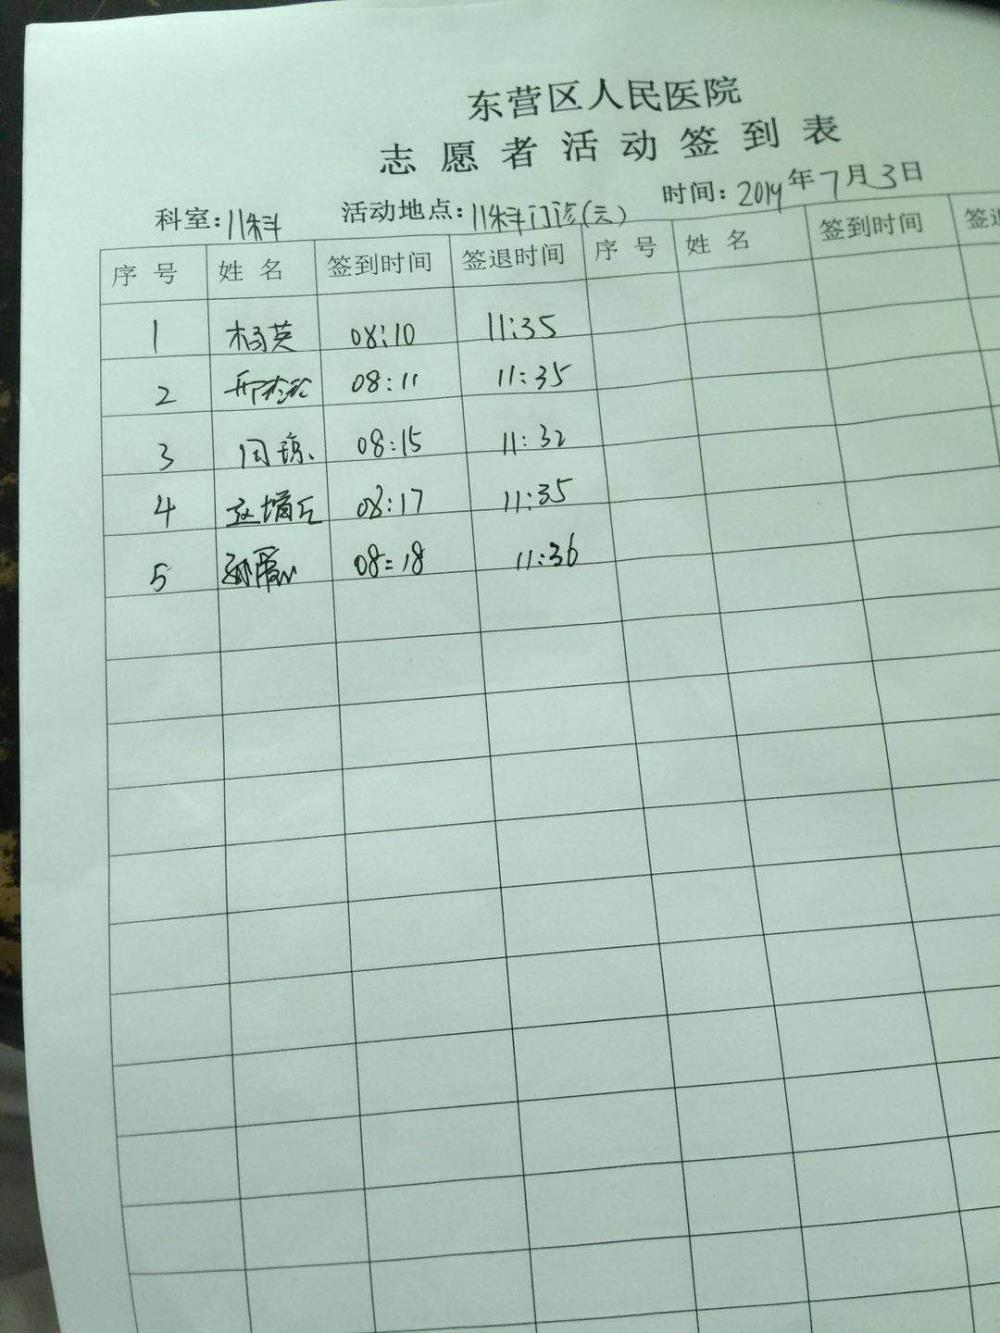 东营区人民医院
志愿者活动签到表
科室:儿科 活动地点:儿科门诊(云) 时间:2019年7月3日
序号 姓名 签到时间 签退时间 序号 姓名 签到时间 签退
1 杨英 08:10 11:35
2 08:11 11:35
3 周琼 08:15 11:32
4 08:17 11:35
5 08:18 11:36